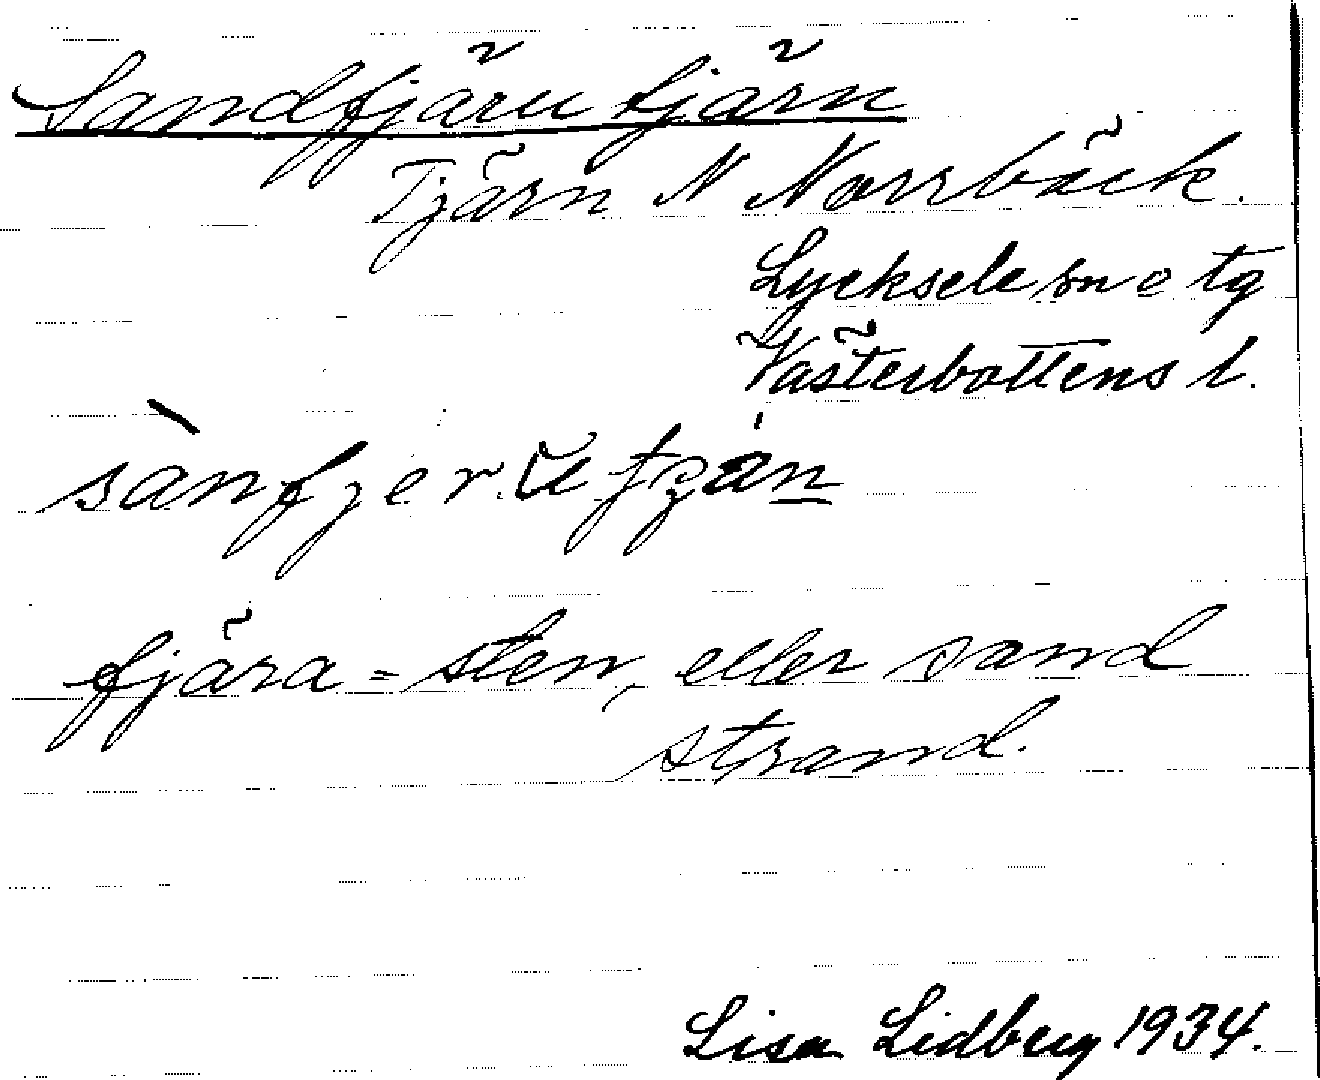 Sandfjäru tjärn
Tjärn N Norrbäck.
Lycksele sn o tg
Västerbottens l.
sànfjer. ŭ tʒán
fjära = sten, eller sand
strand.
Lisa Lidberg 1934.